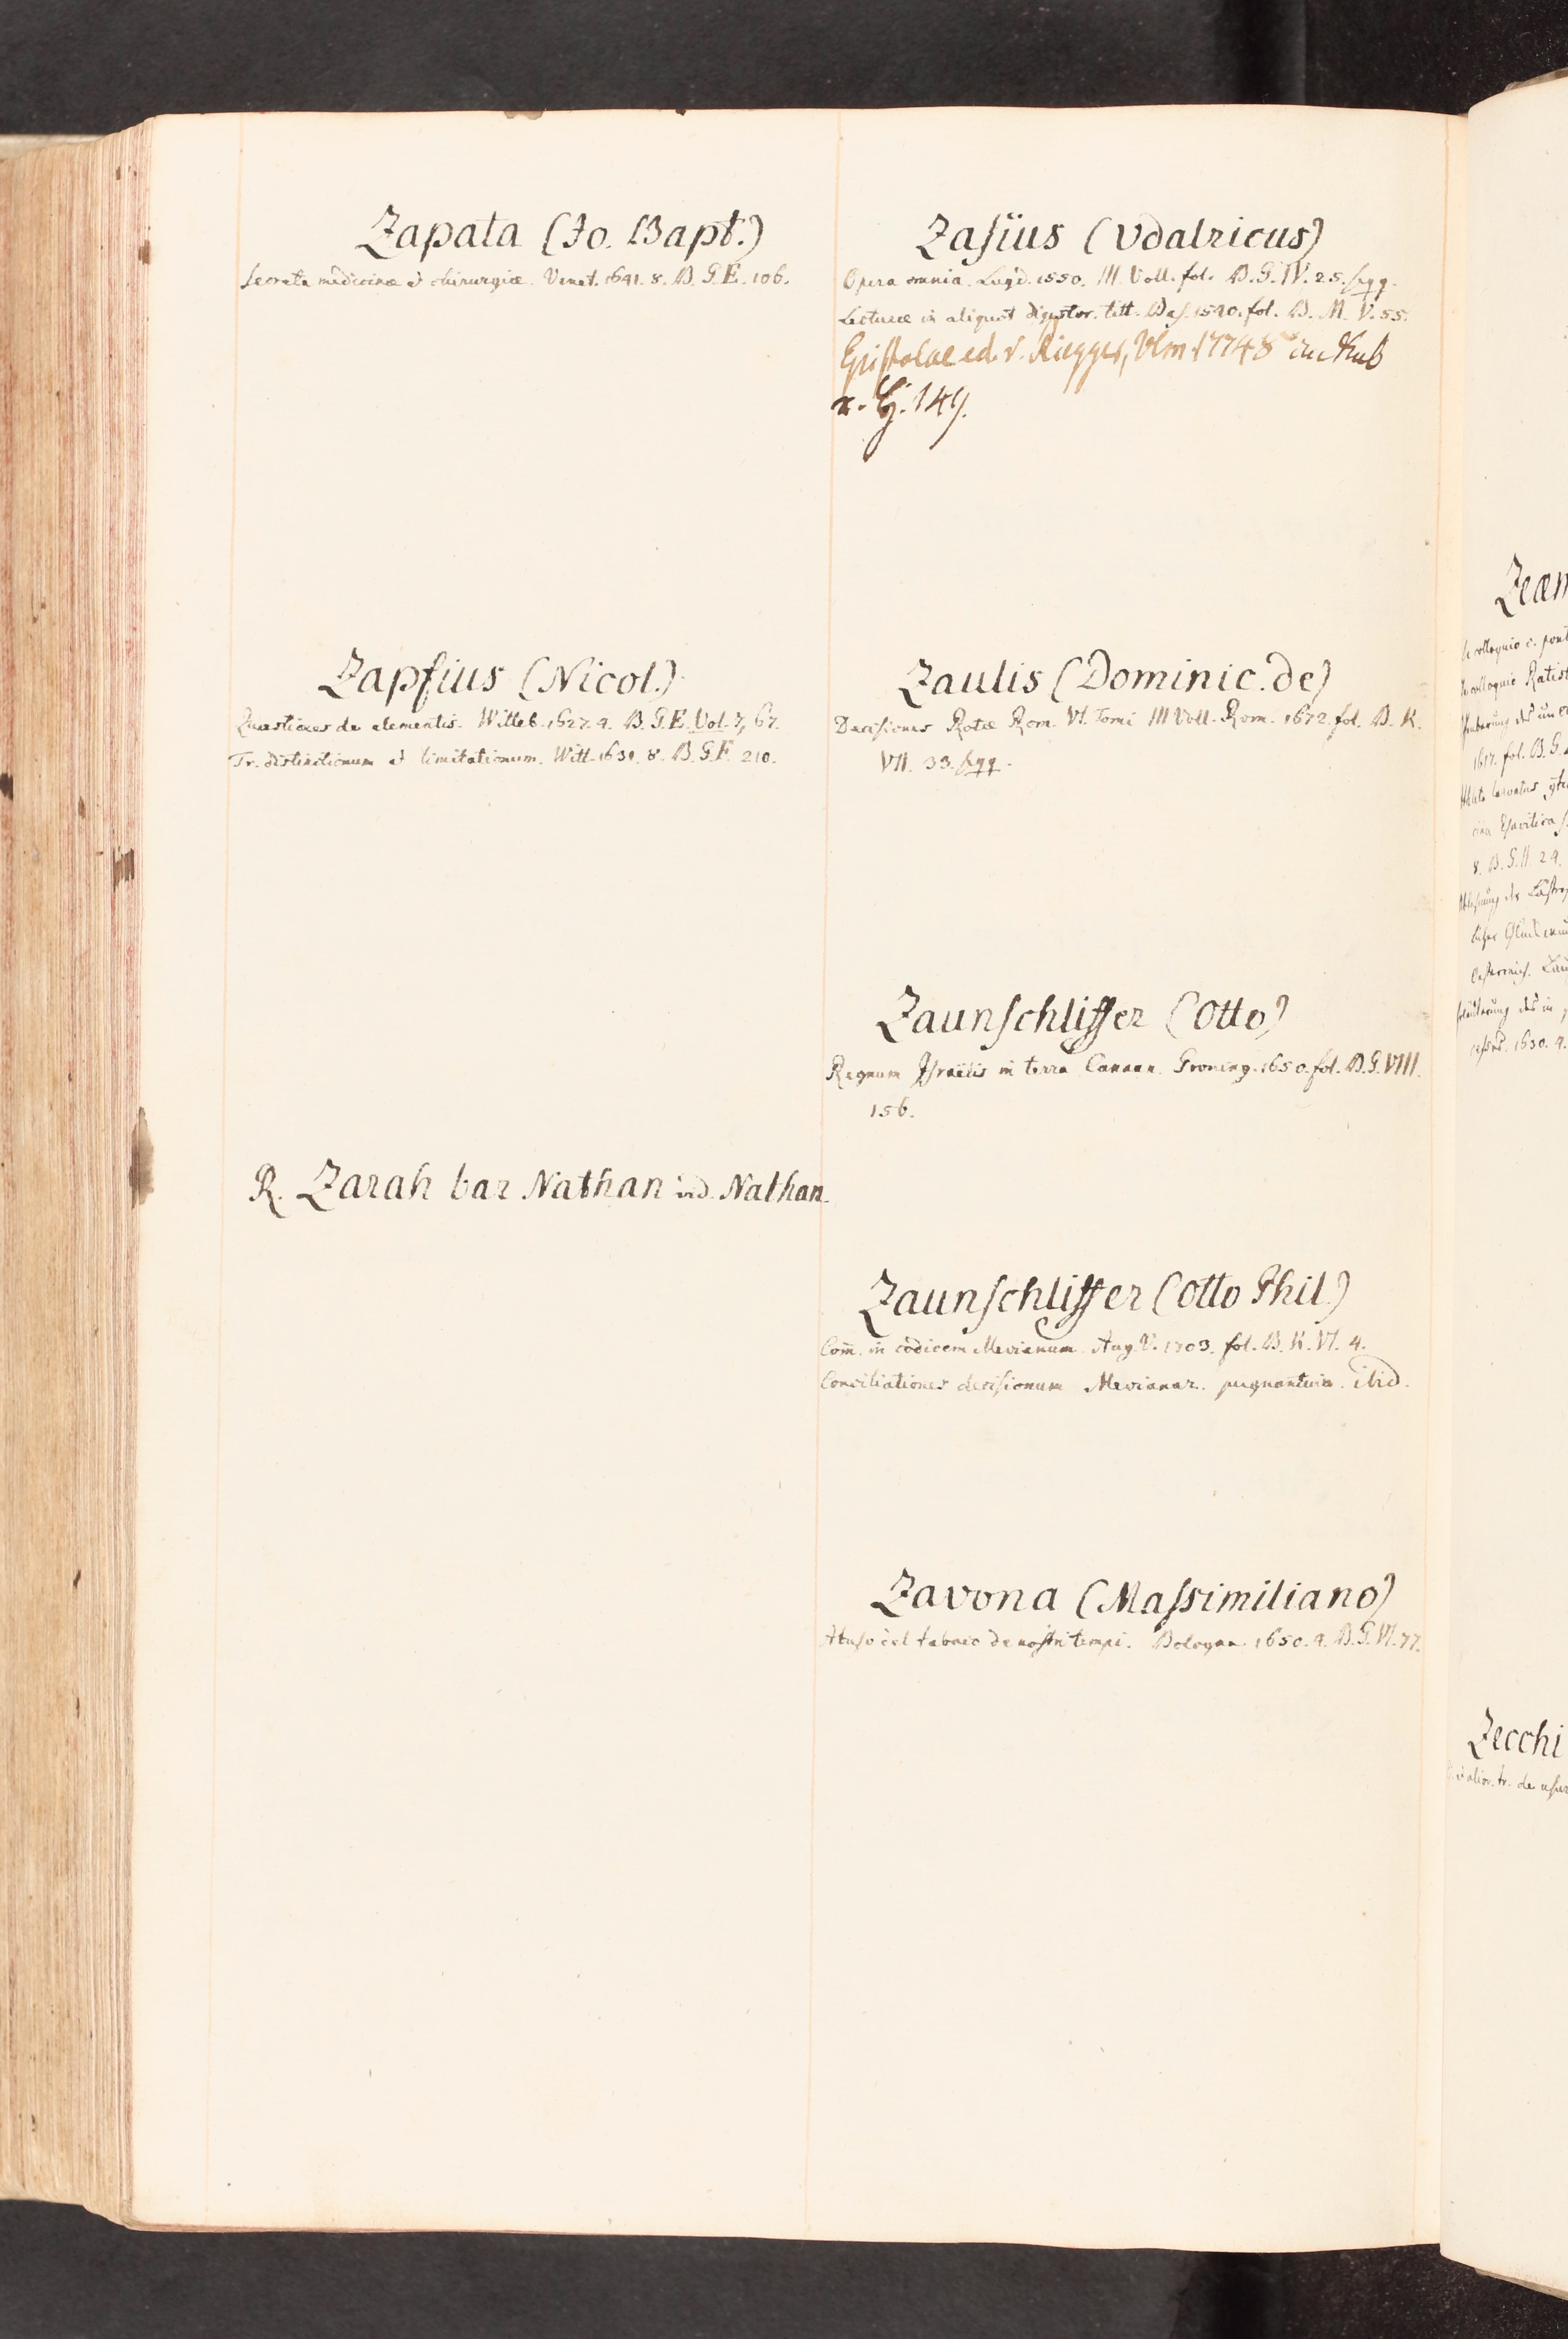 Zapata (Jo. Bapt.)
Secreta medicinæ et chirurgiæ. Venet. 1641. 8. B. G. E. 106.
Zapfius (Nicol.)
Quæstiones de elementis. Witteb. 1627. 4. B. G. E. Vol. 7, 67.
Tr. distinctionum et limitationum. Witt. 1631. 8. B. G. F. 210.
R. Zarah bar Nathan vid. Nathan.
Zasius (Udalricus)
Opera omnia. Lugd. 1550. III. Voll. fol. B. G. IV. 25. sqq.
Lecturæ in aliquot digestor. titt. Bas. 1540. fol. B. M. V. 55.
Epistolae ed. v. Riegger, Ulm 1774 8
149.
Zaulis (Dominic. de)
Decisiones Rotæ Rom. VI. Tomi III Voll. Rom. 1672. fol. B. K.
VII. 33. sqq.
Zaunschliffer (Otto)
Regnum Israëlis in terra Canaan. Groning. 1650. fol. B. G. VIII.
156.
Zaunschliffer (Otto Phil.)
Com̄. in codicem Mevianum. Aug. V. 1703. fol. B. K. VI. 4.
Conciliationes decisionum Mevianar. pugnantium. ibid.
Zavona (Massimiliano)
Abuso del tabaco de nostri tempi. Bologna. 1650. 4. B. G. VI. 77.
Zecchi